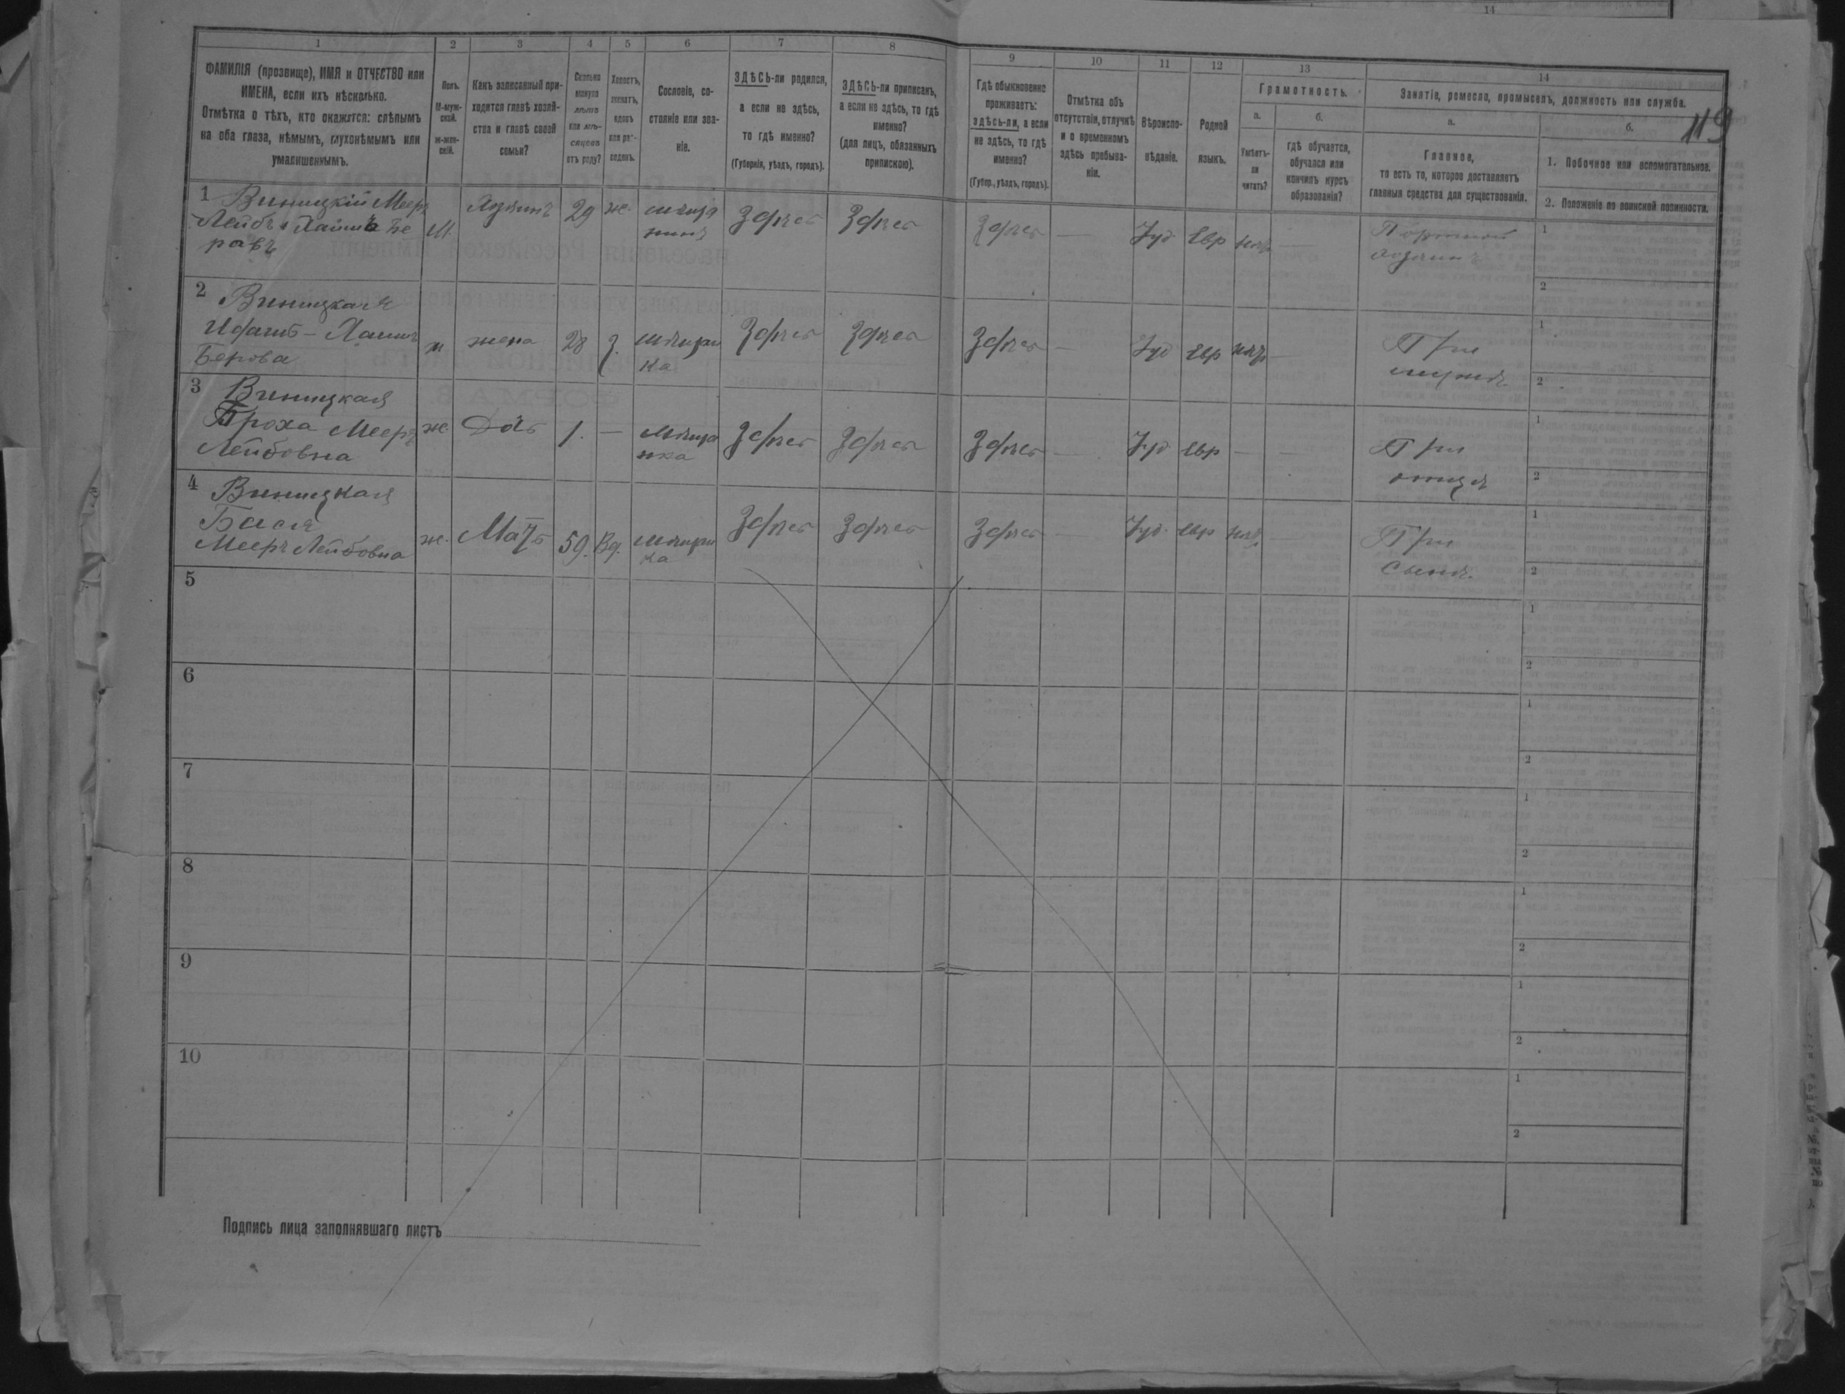 14
1 2 3 4 5 6 7 8 9 10 11 12 13 14
ФАМИЛІЯ (прозвище), ИМЯ и ОТЧЕСТВО или
ИМЕНА, если ихъ нѣсколько.
Отмѣтка о тѣхъ, кто окажется: слѣпымъ
на оба глаза, нѣмымъ, глухонѣмымъ или
умалишеннымъ.
Полъ.
М-муж-
ской.
Ж-жен-
скій.
Какъ записанный при-
ходится главѣ хозяй-
ства и главѣ своей
семьи?
Сколько
минуло
лѣтъ
или мѣ-
сяцевъ
отъ роду?
Холостъ,
женатъ,
вдовъ
или раз-
веденъ.
Сословіе, со-
стояніе или зва-
ніе.
ЗДѢСЬ-ли родился,
а если не здѣсь,
то гдѣ именно?
(Губернія, уѣздъ, городъ).
ЗДѢСЬ-ли приписанъ,
а если не здѣсь, то гдѣ
именно?
(для лицъ, обязанныхъ
припискою).
Гдѣ обыкновенно
проживаетъ:
здѣсь-ли, а если
не здѣсь, то гдѣ
именно?
(Губер., уѣздъ, городъ).
Отмѣтка объ
отсутствіи, отлучкѣ
и о временномъ
здѣсь пребыва-
ніи.
Вѣроиспо-
вѣданіе.
Родной
языкъ.
Грамотность.
а.
Умѣетъ-
ли
читать?
б.
гдѣ обучается,
обучался или
кончилъ курсъ
образованія?
Занятіе, ремесло, промыселъ, должность или служба.
119
а.
Главное,
то есть то, которое доставляетъ
главныя средства для существованія.
б.
1. Побочное или вспомогательное.
2. Положеніе по воинской повинности.
1 Виницкій Меер
Лейбъ Хаимъ Бе
ровъ
М
Хозяинъ
29
ж.
мѣща
нинъ
Здѣсь
Здѣсь
Здѣсь
—
Іуд
Евр
—
Портной
хозяинъ
1
2
2 Виницкая
Хаит
Берова
ж
жена
28
З.
мѣщан
ка
Здѣсь
Здѣсь
Здѣсь
—
Іуд
евр
—
При
мужѣ
1
2
3 Виницкая
Броха Мееръ
Лейбовна
ж
Дочь
1.
—
мѣща
нка
Здѣсь
Здѣсь
Здѣсь
—
Іуд
евр
—
—
При
отцѣ
1
2
4 Виницкая
Бася
Мееръ Лейбовна
ж.
Мать
59.
Вд.
мѣщан
ка
Здѣсь
Здѣсь
Здѣсь
—
Іуд.
евр
При
сынѣ.
1
2
5
1
2
6
1
2
7
1
2
8
1
2
9
1
2
10
1
2
Подпись лица заполнявшаго листъ